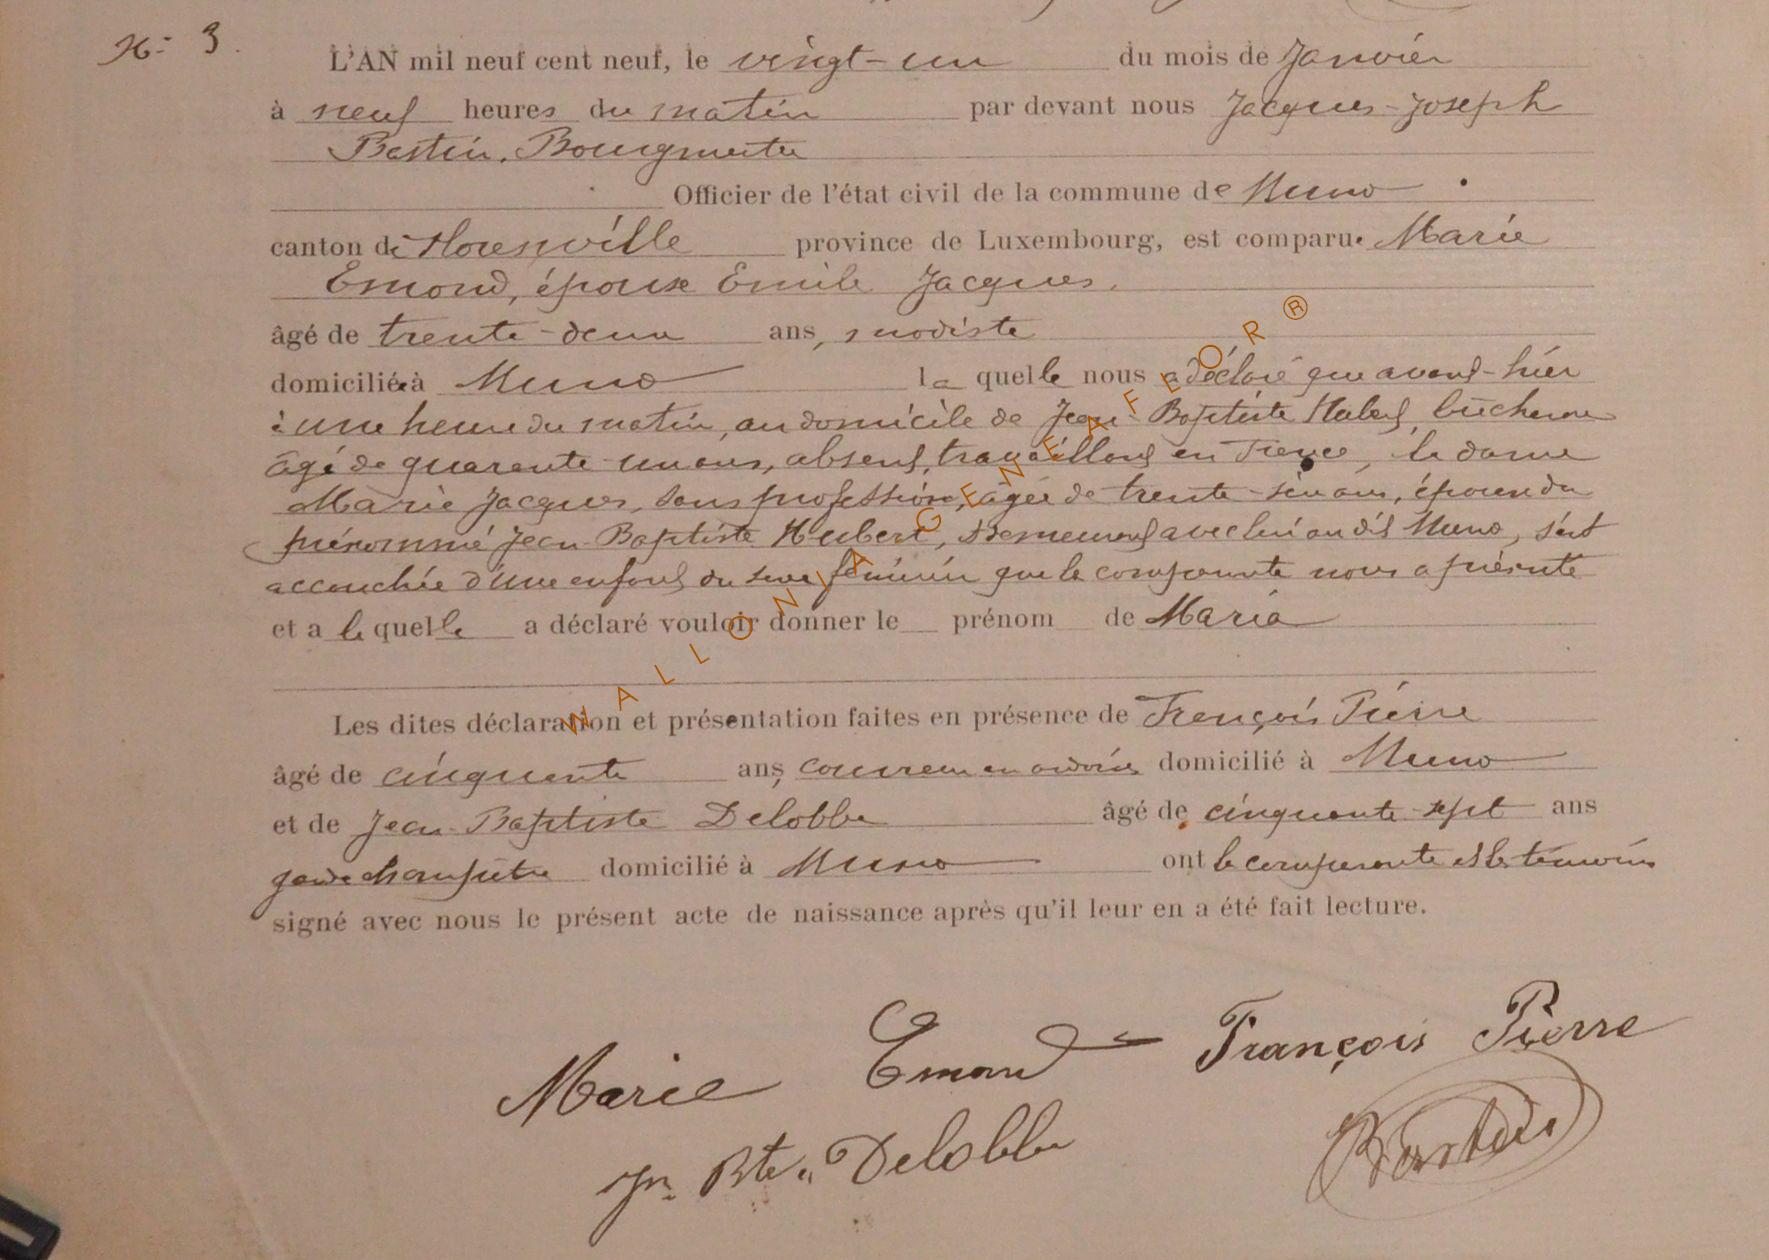 N° 3.
L'AN mil neuf cent neuf, le vingt-un du mois de Janvier
à neuf heures du matin par devant nous Jacques-Joseph
Bastin, Bourgmestre
Officier de l'état civil de la commune de Muno
canton de Florenville province de Luxembourg, est comparue Marie
Emond, épouse Emile Jacques,
âgé de trente-deux ans, modiste
domiciliée à Muno laquelle nous a déclaré que avant-hier
à une heure du matin, au domicile de Jean-Baptiste Hubert, bûcheron
âgé de quarante-un ans, absent, travaillant en France, la dame
Marie Jacques, sans profession, âgée de trente-six ans, épouse du
prénommé Jean-Baptiste Hubert, demeurant avec lui au dit Muno, s'est
accouchée d'une enfant du sexe féminin que la comparante nous a présenté
et a laquelle a déclaré vouloir donner le prénom de Maria
Les dites déclaration et présentation faites en présence de François Pierre
âgé de cinquante ans, couvreur en ardoises domicilié à Muno
et de Jean-Baptiste Delobbe âgé de cinquante-sept ans
garde champêtre domicilié à Muno ont la comparante et les témoins
signé avec nous le présent acte de naissance après qu'il leur en a été fait lecture.
Marie Emond François Pierre
Jn Bte Delobbe Bastin
WALLONIA GENEAFEOR ®